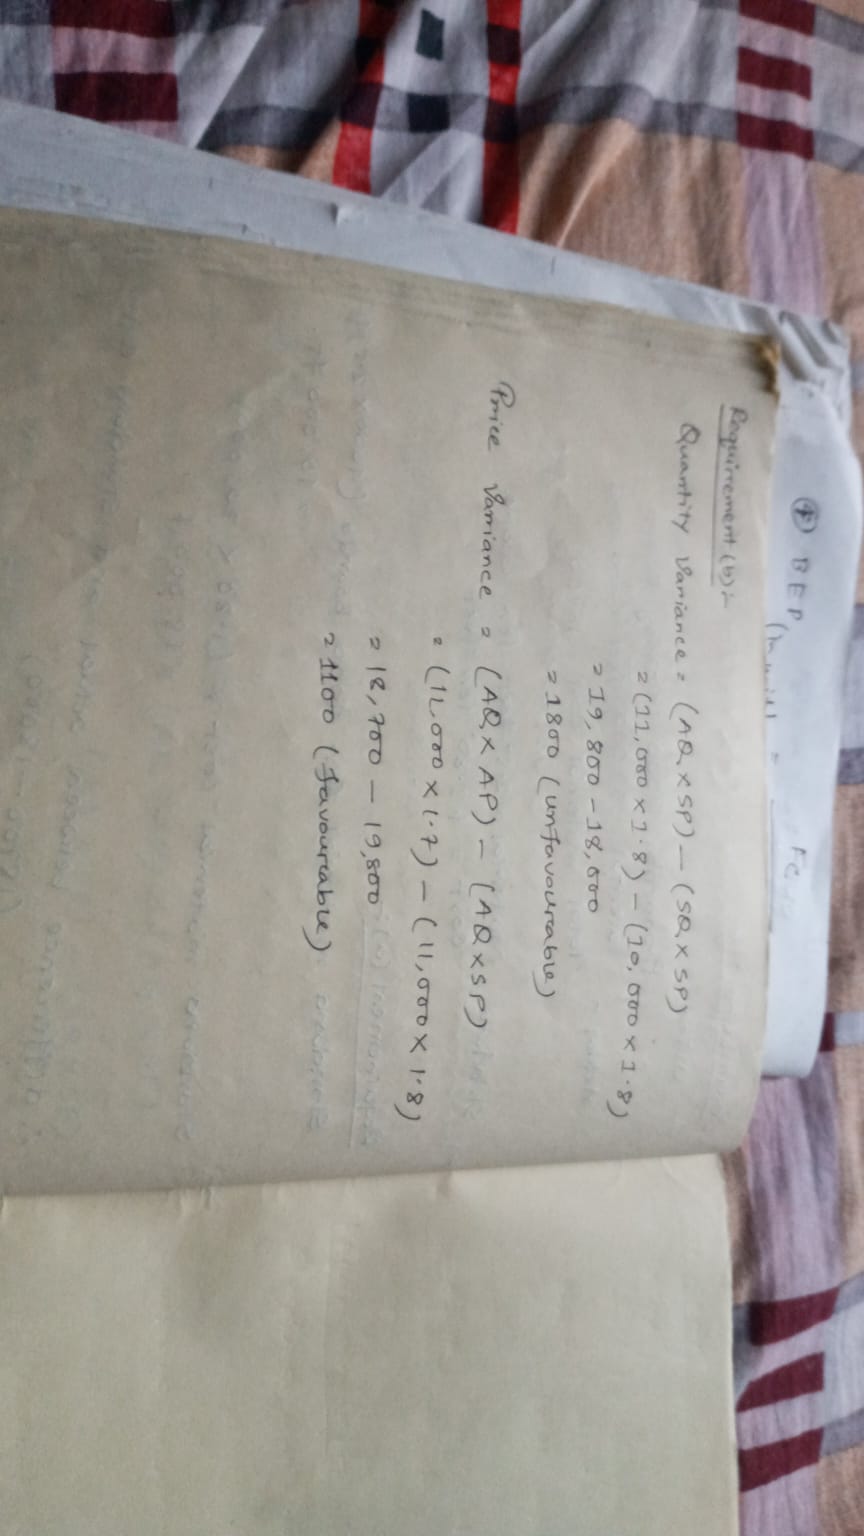 ④ BEP
Fc
Requirement (b):-
Quantity Variance = (AQ x SP) - (SQ x SP)
= (11,000 x 1.8) - (10,000 x 1.8)
= 19,800 - 18,000
= 1800 (unfavourable)
Price Variance = (AQ x AP) - (AQ x SP)
= (11,000 x 1.7) - (11,000 x 1.8)
= 18,700 - 19,800
= 1100 (favourable)